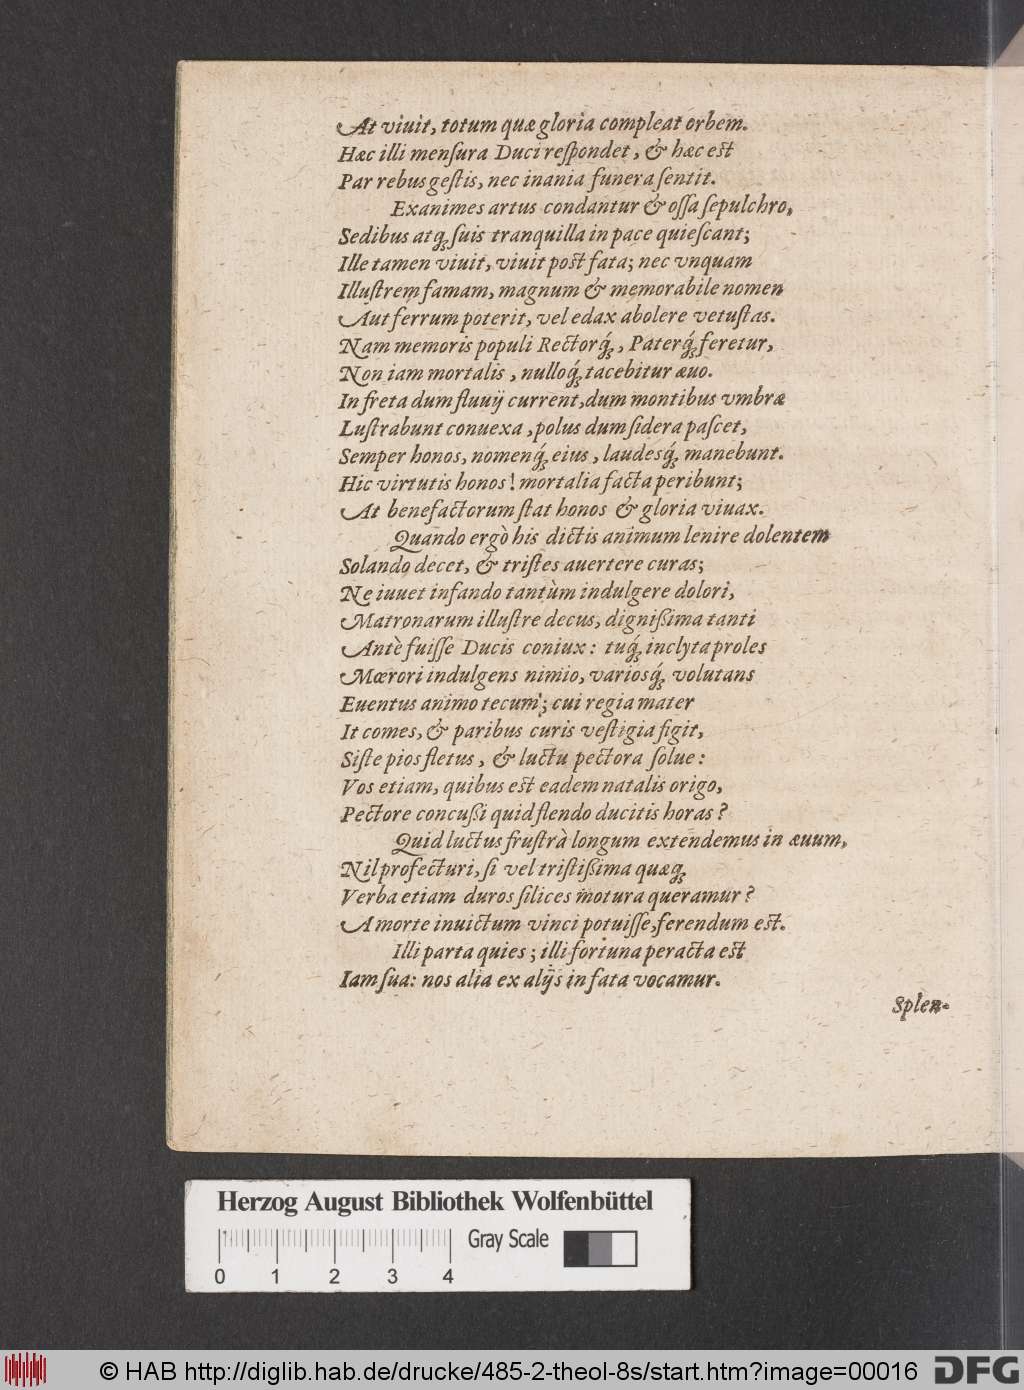 At viuit, totum quæ gloria compleat orbem.
Hæc illi menſura Duci reſpondet, & hæc est
Par rebus geſtis, nec inania funera ſentit.
Exanimes artus condantur & oſſa ſepulchro,
Sedibus atq́ꝫ ſuis tranquilla in pace quieſcant;
Ille tamen viuit, viuit post fata; nec vnquam
Illuſtrem famam, magnum & memorabile nomen
Aut ferrum poterit, vel edax abolere vetuſtas.
Nam memoris populi Rectorq́ꝫ, Paterq́ꝫ feretur,
Non iam mortalis, nulloq́ꝫ tacebitur æuo.
In freta dum fluuij current, dum montibus vmbræ
Luſtrabunt conuexa, polus dum ſidera paſcet,
Semper honos, nomenq́ꝫ eius, laudesq́ꝫ manebunt.
Hic virtutis honos! mortalia facta peribunt;
At benefactorum ſtat honos & gloria viuax.
Quando ergò his dictis animum lenire dolentem
Solando decet, & triſtes auertere curas;
Ne iuuet infando tantùm indulgere dolori,
Matronarum illuſtre decus, digniſſima tanti
Antè fuiſſe Ducis coniux: tuq́ꝫ inclyta proles
Mœrori indulgens nimio, variosq́ꝫ volutans
Euentus animo tecum; cui regia mater
It comes, & paribus curis veſtigia figit,
Siſte pios fletus, & luctu pectora ſolue:
Vos etiam, quibus est eadem natalis origo,
Pectore concuſſi quid flendo ducitis horas?
Quid luctus fruſtrà longum extendemus in æuum,
Nil profecturi, ſi vel triſtiſſima quæqꝫ
Verba etiam duros ſilices motura queramur?
A morte inuictum vinci potuiſſe, ferendum est.
Illi parta quies; illi fortuna peracta est
Iam ſua: nos alia ex alijs in fata vocamur.
Splen-
Herzog August Bibliothek Wolfenbüttel
Gray Scale
0 1 2 3 4
© HAB http://diglib.hab.de/drucke/485-2-theol-8s/start.htm?image=00016
DFG